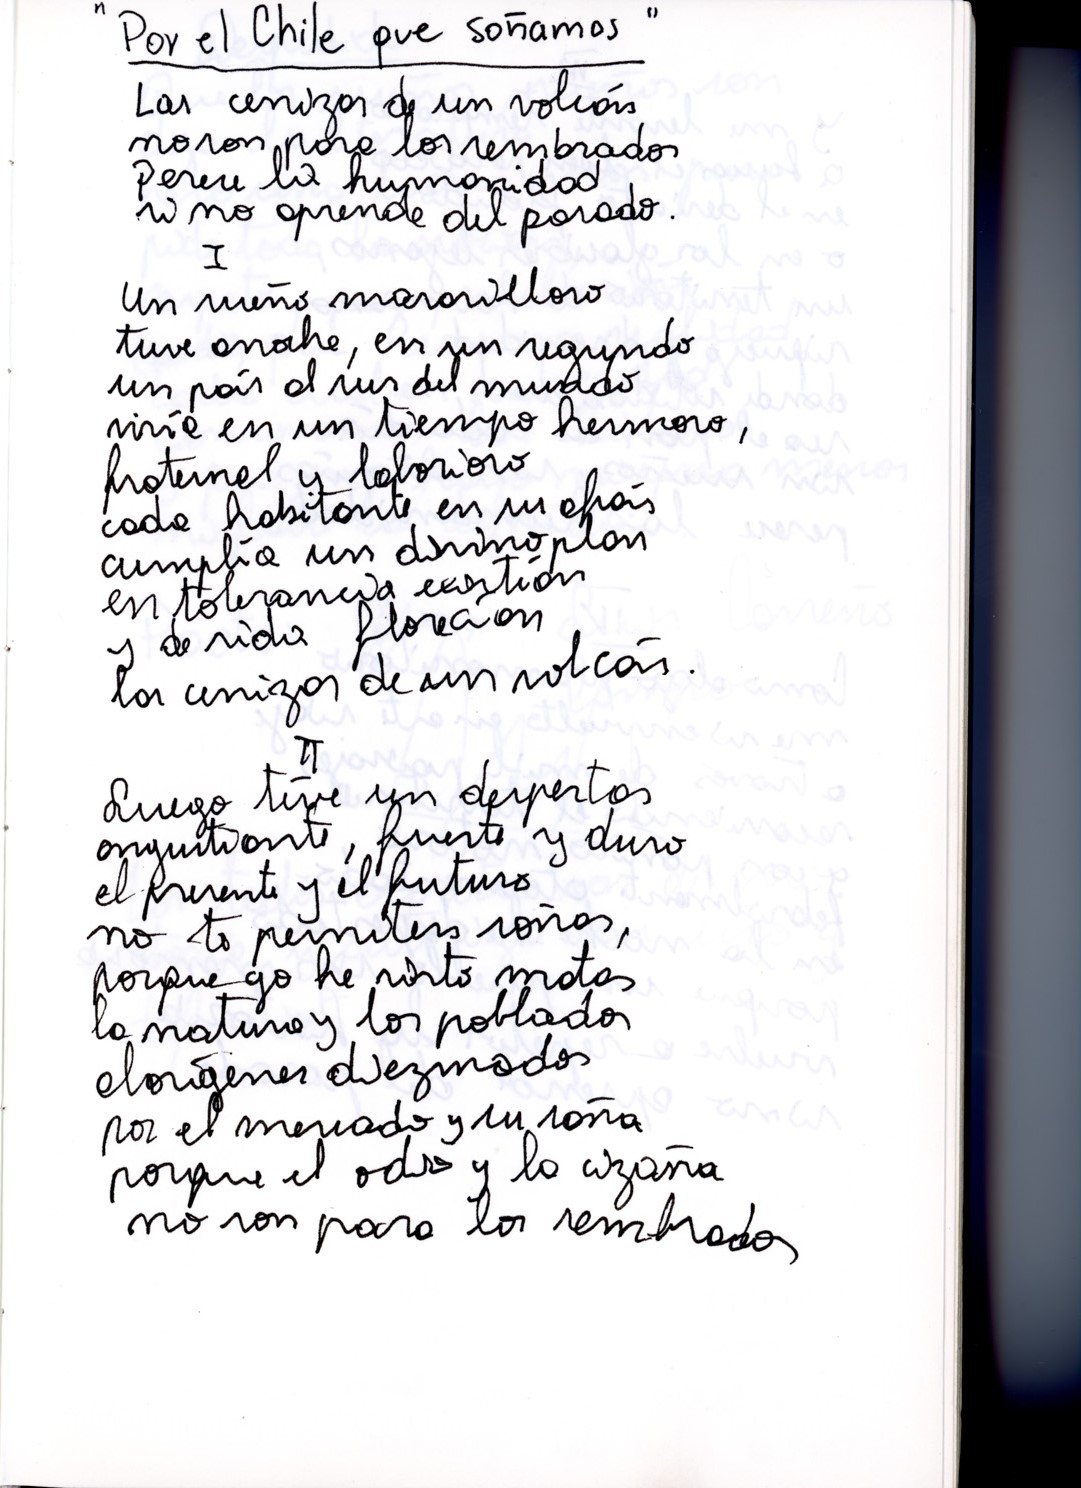 "Por el Chile que soñamos"
Las cenizas de un volcán
no son para los sembrados
Perece la humanidad
si no aprende del pasado.
I
Un sueño maravilloso
tuve anoche, en un segundo
un país al sur del mundo
vivía en un tiempo hermoso,
fraternal y laborioso
cada habitante en su afán
cumplía un divino plan
en tolerancia y
y de vida florecían
las cenizas de un volcán.
II
Luego tuve un despertar
angustiante, fuerte y duro
el presente y el futuro
no te permiten soñar,
porque yo he visto matar
la natura y los poblados
aborígenes diezmados
por el mercado y su saña
porque el odio y la cizaña
no son para los sembrados